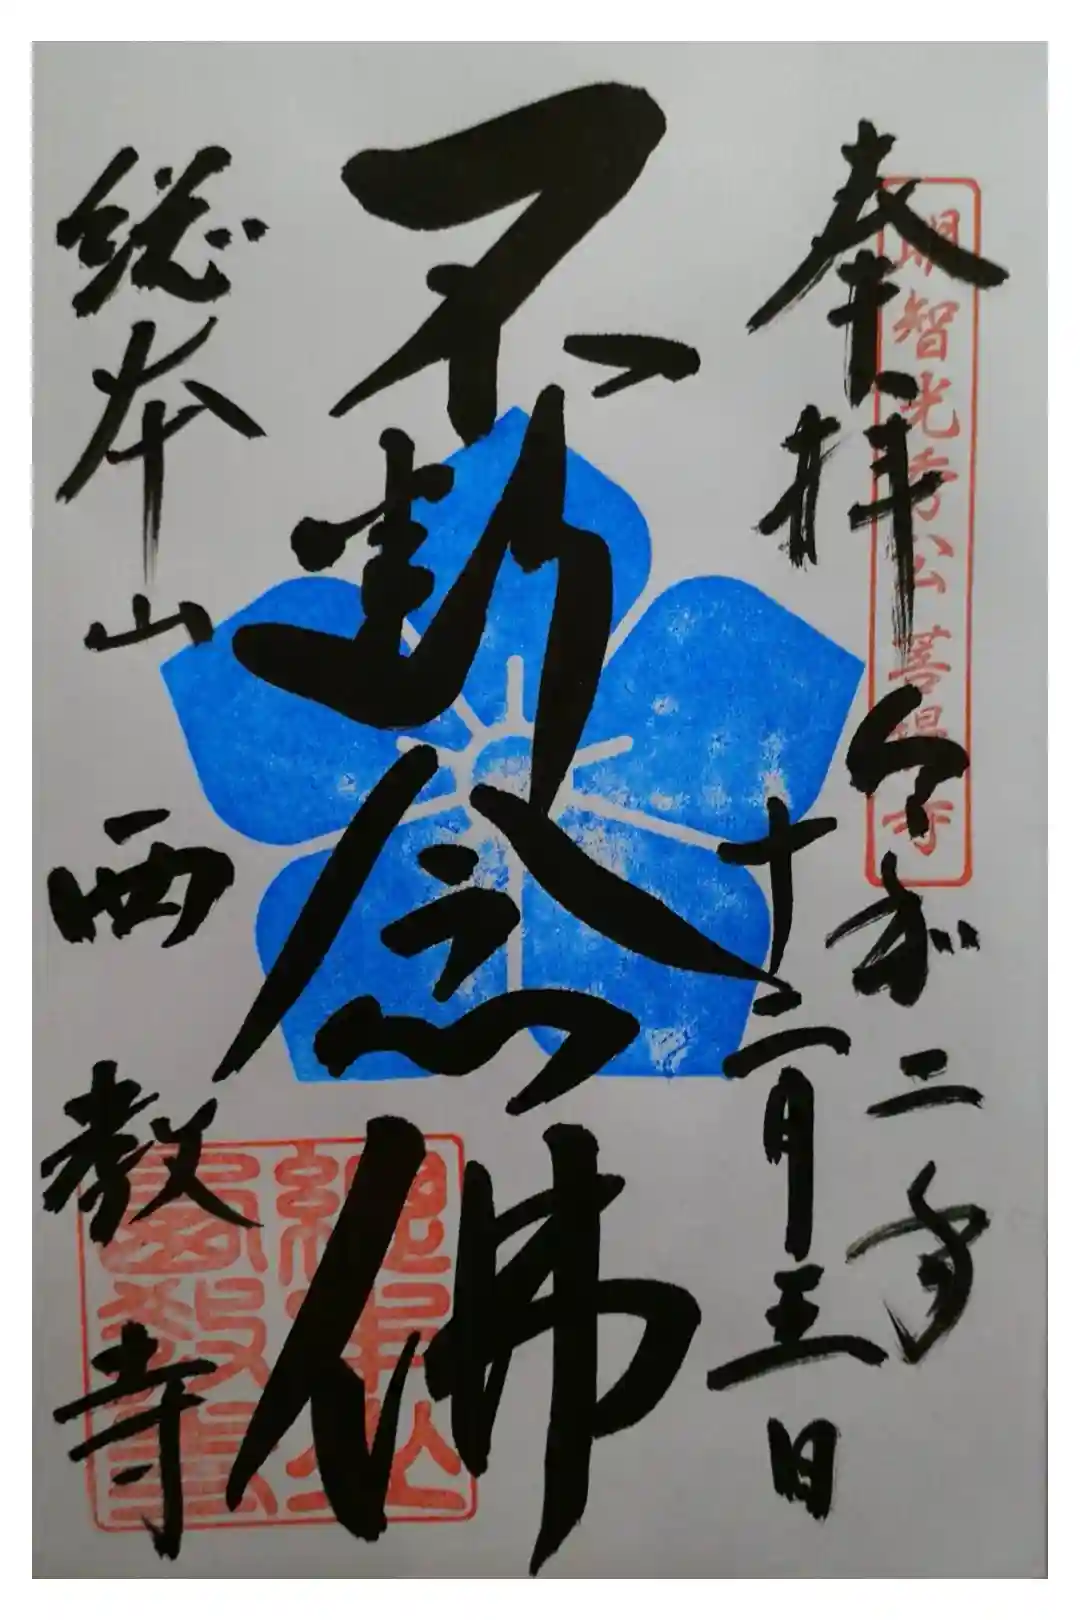 明智光秀公菩提寺
奉拝 令和二年
十二月五日
不断念佛
総本山 西教寺